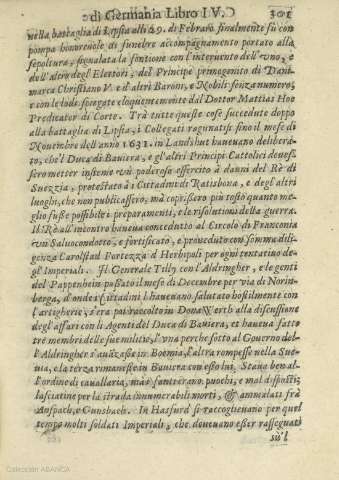 di Germania Libro IV. 301
nella battaglia di Lipsia alli 29. di Febraro finalmente fù con
pompa honoreuole di funebre accompagnamento portato alla
sepoltura, signalata la fontione con l'interuento dell'vno, e
dell'altro degl'Elettori, del Principe primogenito di Dani-
marca Christiano V. e d'altri Baroni, e Nobili senza numero,
e con le lodi spiegate eloquentemente dal Dottor Mattias Hoe
Predicator di Corte. Trà tutte queste cose succedute doppo
alla battaglia di Lipsia, i Collegati ragunatisi sino il mese di
Nouembre dell'anno 1631. in Landshut haueuano delibera-
to, che'l Duca di Bauiera, e gl'altri Principi Cattolici doues-
sero metter insieme vn poderoso essercito à danni del Rè di
Suezzia, protestato à i Cittadini di Ratisbona, e degl'altri
luoghi, che non publicassero, mà coprissero più tosto quanto me-
glio fusse possibile i preparamenti, e le risolutioni della guerra.
Il Rè all'incontro haueua conceduto al Circolo di Franconia
vn Saluocondotto, e fortificato, e proueduto con somma dili-
genza Carolstad Fortezza d'Herbipoli per ogni tentatiuo de-
gl'Imperiali. Il Generale Tilly con l'Aldringher, e le genti
del Pappenheim passato il mese di Decembre per via di Norim-
berga, d'onde i Cittadini l'haueuano salutato hostilmente con
l'artigherie, s'era poi raccolto in Donawerth alla discussione
degl'affari con li Agenti del Duca di Bauiera, et haueua fatto
tre membri delle sue militie, l'vna perche sotto al Gouerno del-
l'Aldringher s'auanzasse in Boemia, l'altra rompesse nella Sue-
uia, e la terza rimanesse in Bauiera con esso lui. Staua ben al-
l'ordine di cauallaria, mà i fanti erano pochi, e mal disposti,
lasciatine per la strada innumerabili morti, & ammalati frà
Anspach, e Gunshach. In Hasfurd si raccoglieuano per quel
tempo molti soldati Imperiali, che doueuano esser rassegnati
su'l
Colección ABANCA